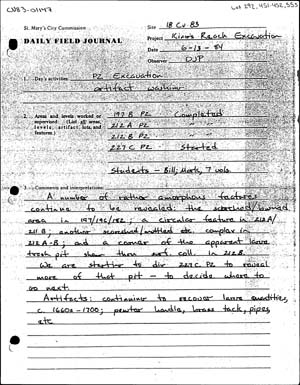 CU83-01147
Lot 292, 451-452, 555
St. Mary's City Commission
DAILY FIELD JOURNAL
Site 18 CV 83
Project King's Reach Excavation
Date 6-13-84
Observer DJP
1. Day's activities PZ Excavation
artifact washing
2. Areas and levels worked or
supervised: (List all areas,
levels, artifact lots, and
features.)
197 B PZ Completed
212 A PZ "
212 B PZ "
227 C PZ Started
Students - Bill, Mark, 7 vols.
3. Comments and interpretations:
A number of rather amorphous features
continue to be revealed: the scorched/burned
area in 197/196/182; a circular feature in 212A/
211B; another scorched/mottled etc. complex in
212 A-B; and a corner of the apparent large
trash pit near them in 212B.
We are starting to dig 227C PZ to reveal
more of that pit - to decide where to
go next.
Artifacts: continuing to recover large quantities,
c. 1660s-1700; pewter handle, brass tack, pipes,
etc